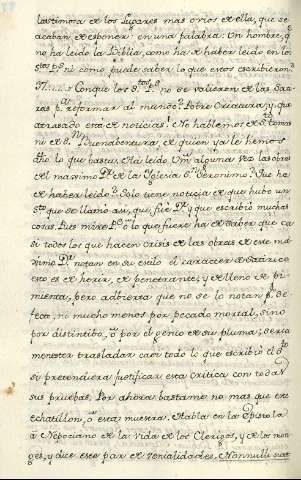 lastimosa de los Lugares mas obios de ella, que se
acaban de esponer: en una palabra: Un hombre, q
no ha leido la Biblia, como ha de haber leido en los
Stos PPs ni como puede saber, lo que estos escribieron?
Conque los Stos PPs no se valieron de las Sati
ras pa reformar al mundo? Pobre Criatura, y que
atrasado está de noticias! No hablemos de Sto Tomas
ni de Sn Buenabentura, de quien ya le hemos
dho lo que basta. Há leido Vm alguna vez las obras
del maximo Pe de la Iglesia Sn Geronimo? Que ha
de haber leido? Solo tiene noticia de que hubo un
Sto que se llamó asi, que fué Pe y que escribió muchas
cosas. Pues mire Pe mio lo que fuere ha de saber que ca
si todos los que hacen Crisis de las obras de este má
ximo Pe notan en su estilo el caracter de Satirico
esto es de herir, de penetrante; y de lleno de pi
mienta, pero advierta que no se lo notan pr de
fecto, ni mucho menos por pecado mortal, sino
por distintibo, ó por el genio de su pluma; seria
menester trasladar casi todo lo que escribió el Sto
si pretendiera justificar esta Critica con todas
sus pruebas. Por ahora bastame no mas que este
echatillon, ó esta muestra. Habla en la Epistola
á Nepociano de la vida de los Clerigos, y de la mon
ges, y dice esto par de venialidades. Nonnulli sunt